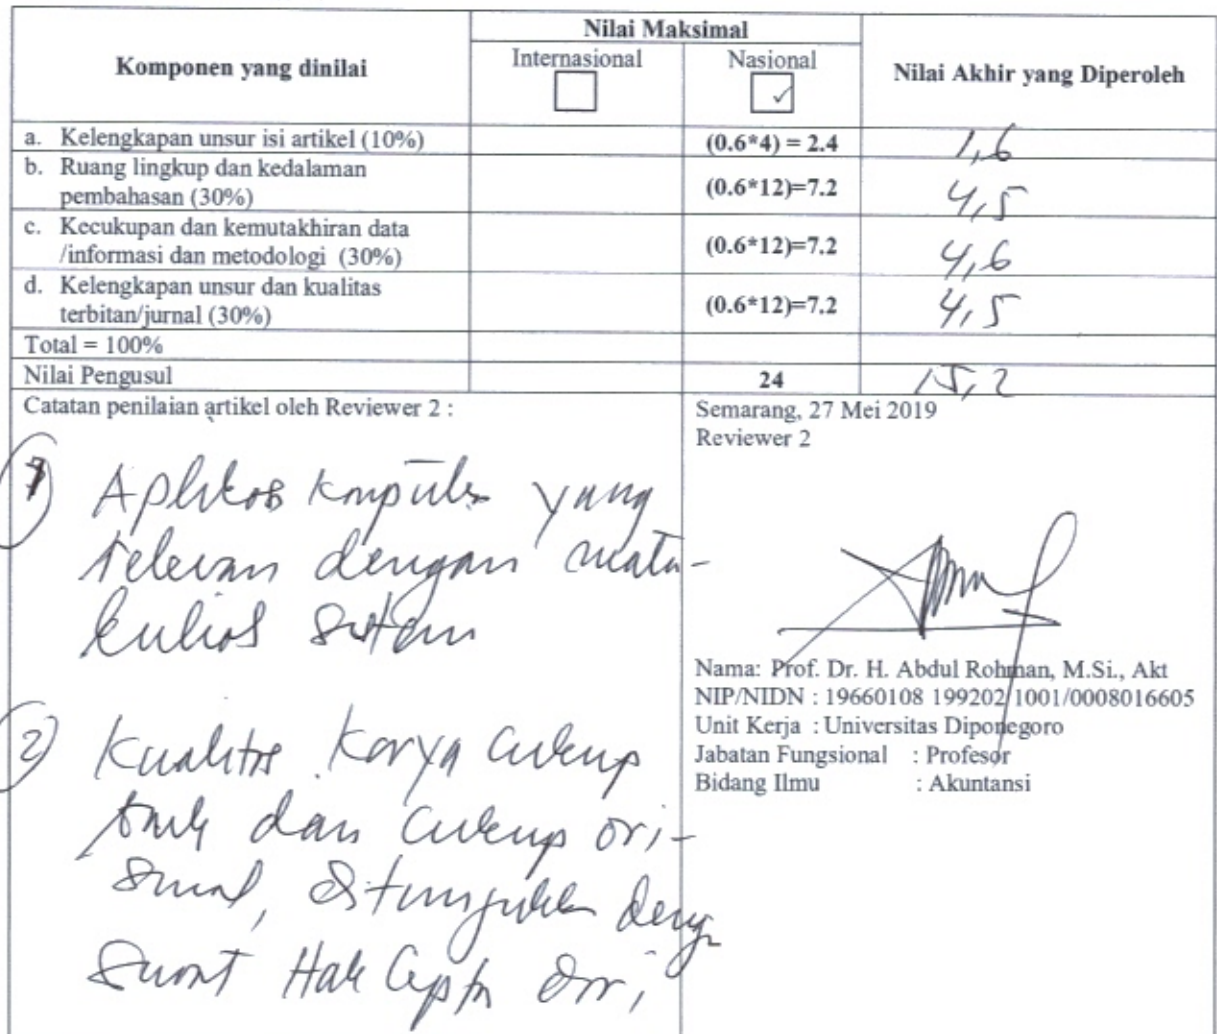 Komponen yang dinilai
Nilai Maksimal
Internasional
Nasional
Nilai Akhir yang Diperoleh
a. Kelengkapan unsur isi artikel (10%)
(0.6*4) = 2.4
1,6
b. Ruang lingkup dan kedalaman
pembahasan (30%)
(0.6*12)=7.2
4,5
c. Kecukupan dan kemutakhiran data
/informasi dan metodologi (30%)
(0.6*12)=7.2
4,6
d. Kelengkapan unsur dan kualitas
terbitan/jurnal (30%)
(0.6*12)=7.2
4,5
Total = 100%
Nilai Pengusul
24
15,2
Catatan penilaian artikel oleh Reviewer 2 :
1 Aplikasi komputer yang
relevan dengan mata-
kuliah sistem
2 Kualitas karya cukup
baik dan cukup ori-
sinal, ditunjukkan deng
surat Hak Cipta dari
Semarang, 27 Mei 2019
Reviewer 2
Nama: Prof. Dr. H. Abdul Rohman, M.Si., Akt
NIP/NIDN : 19660108 199202 1001/0008016605
Unit Kerja : Universitas Diponegoro
Jabatan Fungsional : Profesor
Bidang Ilmu : Akuntansi